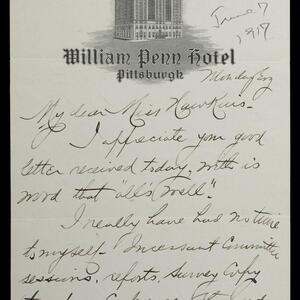 June 7
1917
William Penn Hotel
Pittsburgh
Monday Eve
My dear Miss Hawkins-
I appreciate your good
letter received today, with is
word that "all's well".
I really have had no time
to myself- Incessant Committee
sessions, reports, Survey Copy